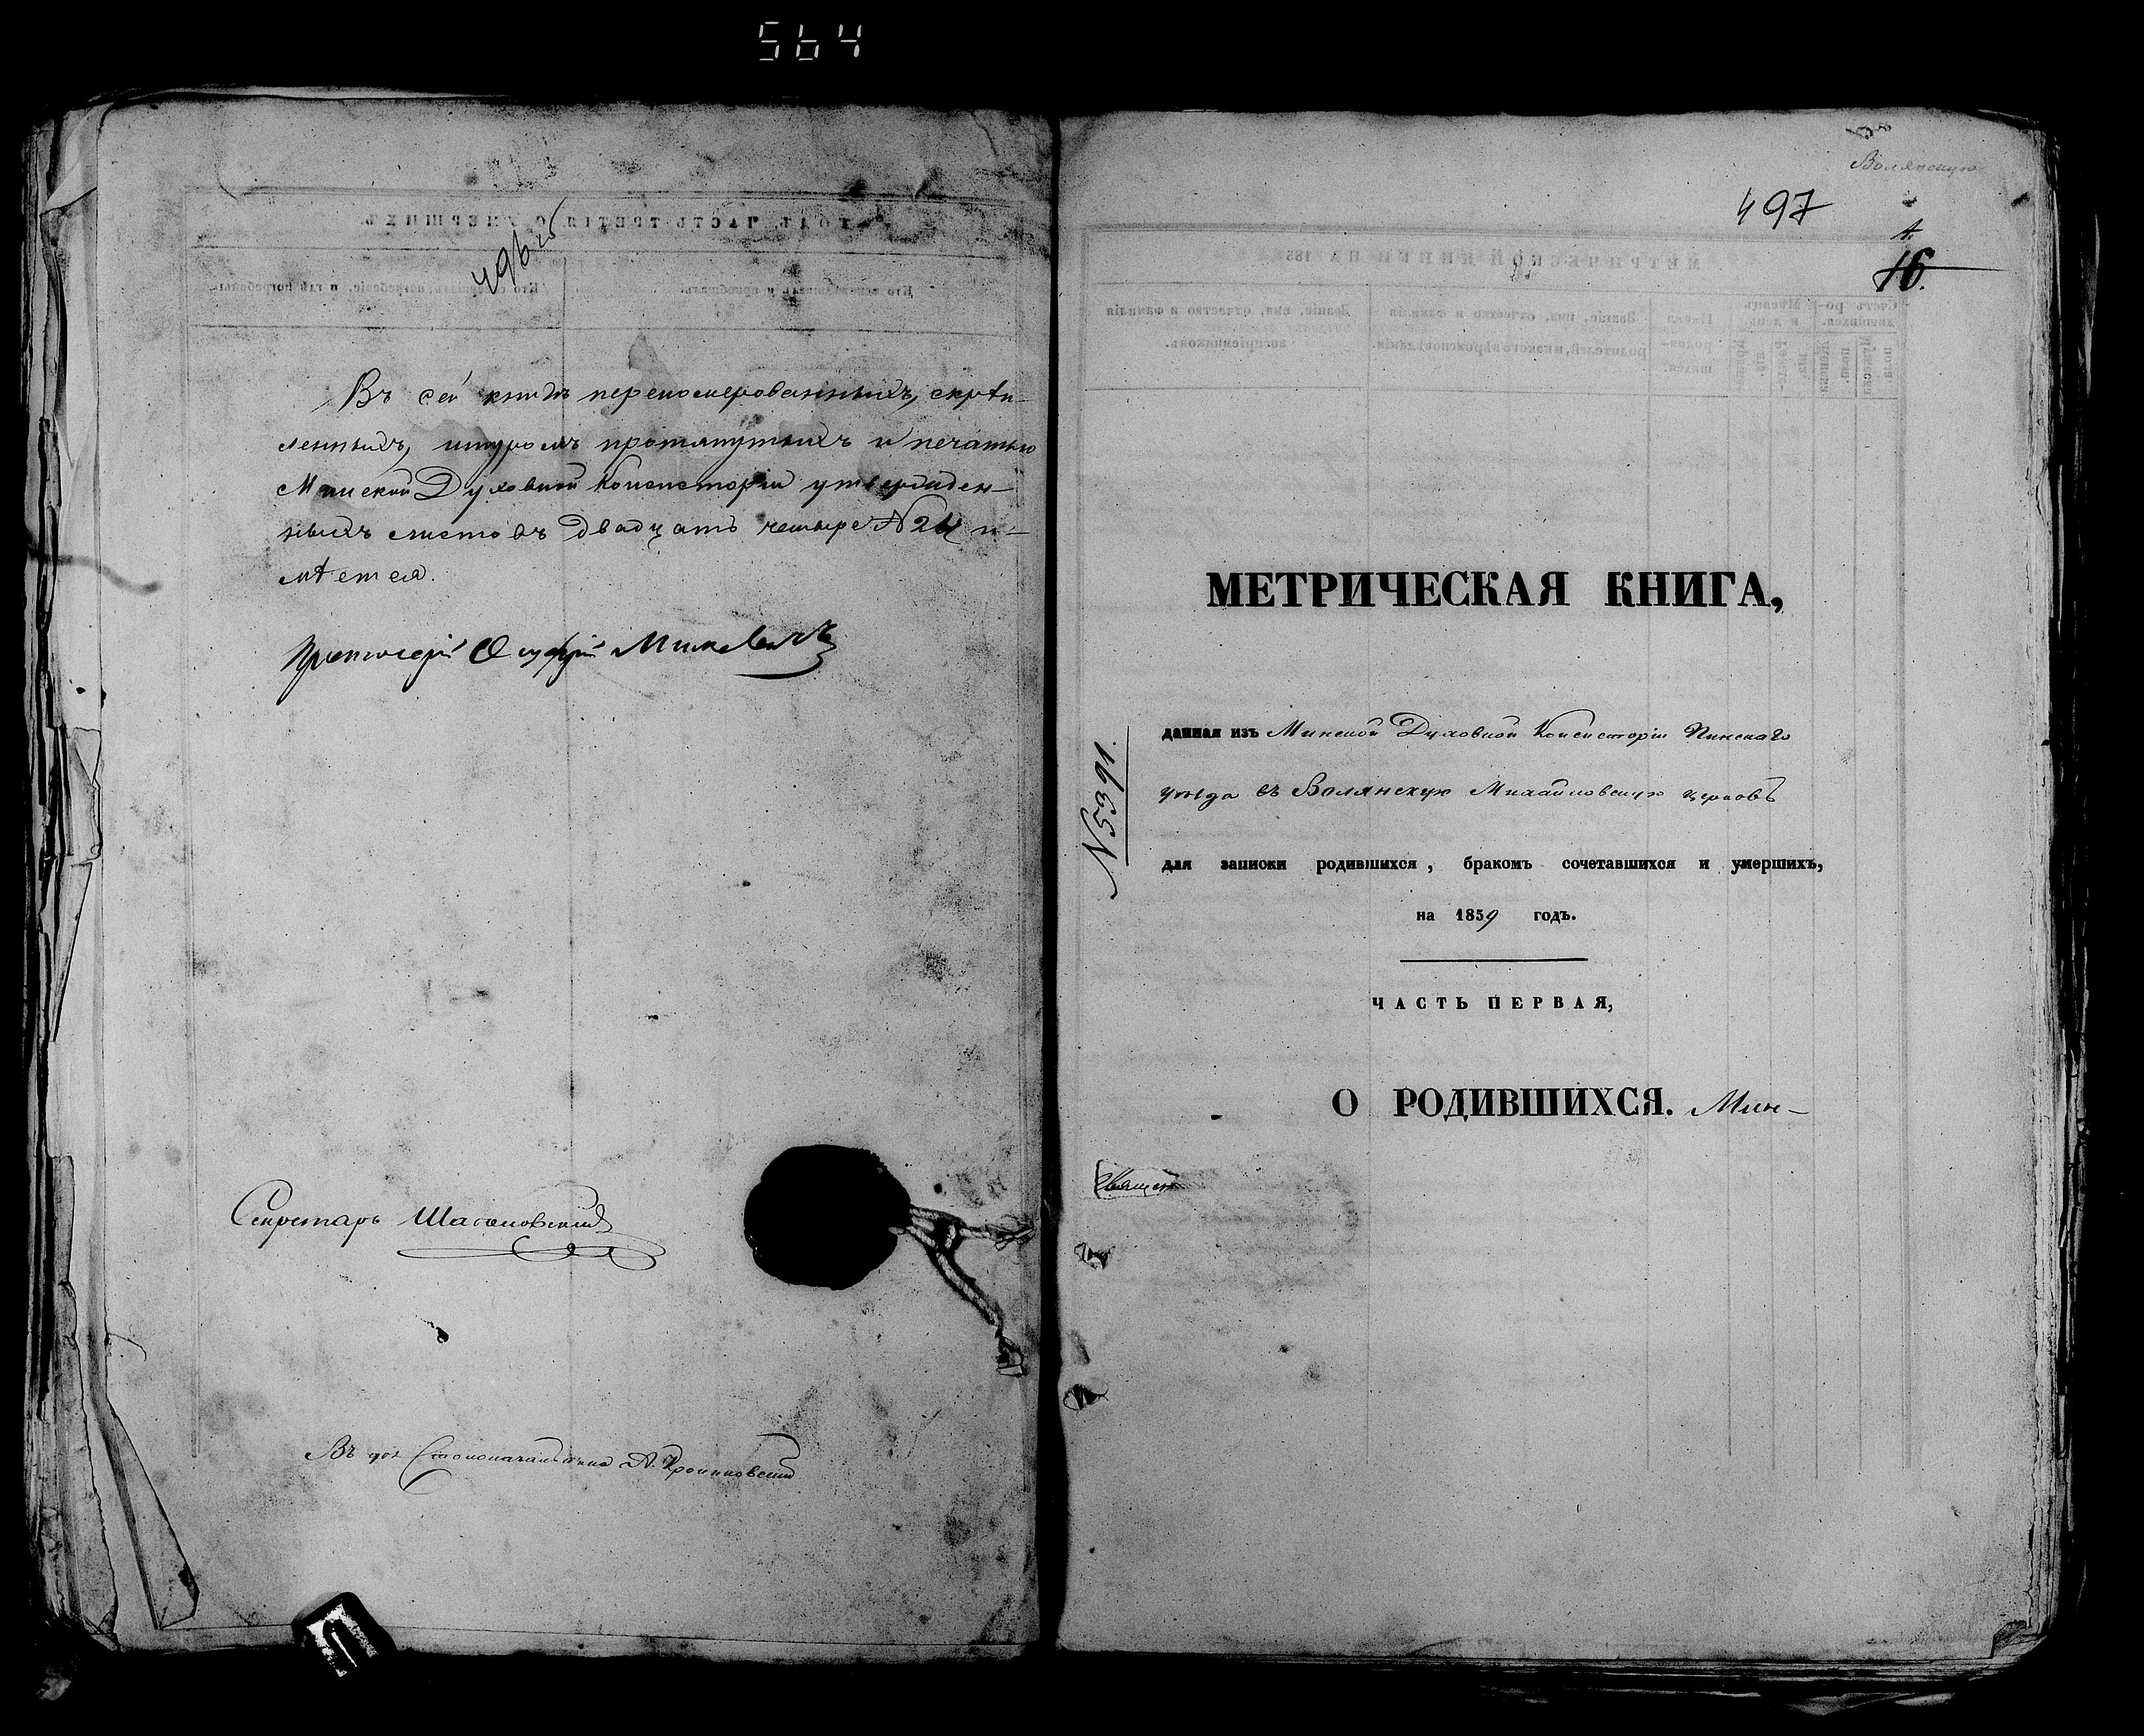 564
496 об
Въ сей книгѣ перенумерованныхъ, скрѣп-
ленныхъ, шнуромъ протянутыхъ и печатью
Минской Духовной Консисторіи утвержден-
ныхъ листовъ двадцать четыре N 24 и-
мѣется.
Протоіерей
Секретарь
Въ дол. Столоначальника А.
Волянскую
497
1.
16.
МЕТРИЧЕСКАЯ КНИГА,
данная изъ Минской Духовной Консисторіи Пинскаго
уѣзда въ Волянскую Михайловскую церковь
N 5391.
для записки родившихся, бракомъ сочетавшихся и умершихъ,
на 1859 годъ.
ЧАСТЬ ПЕРВАЯ,
О РОДИВШИХСЯ. Мин-
Священ